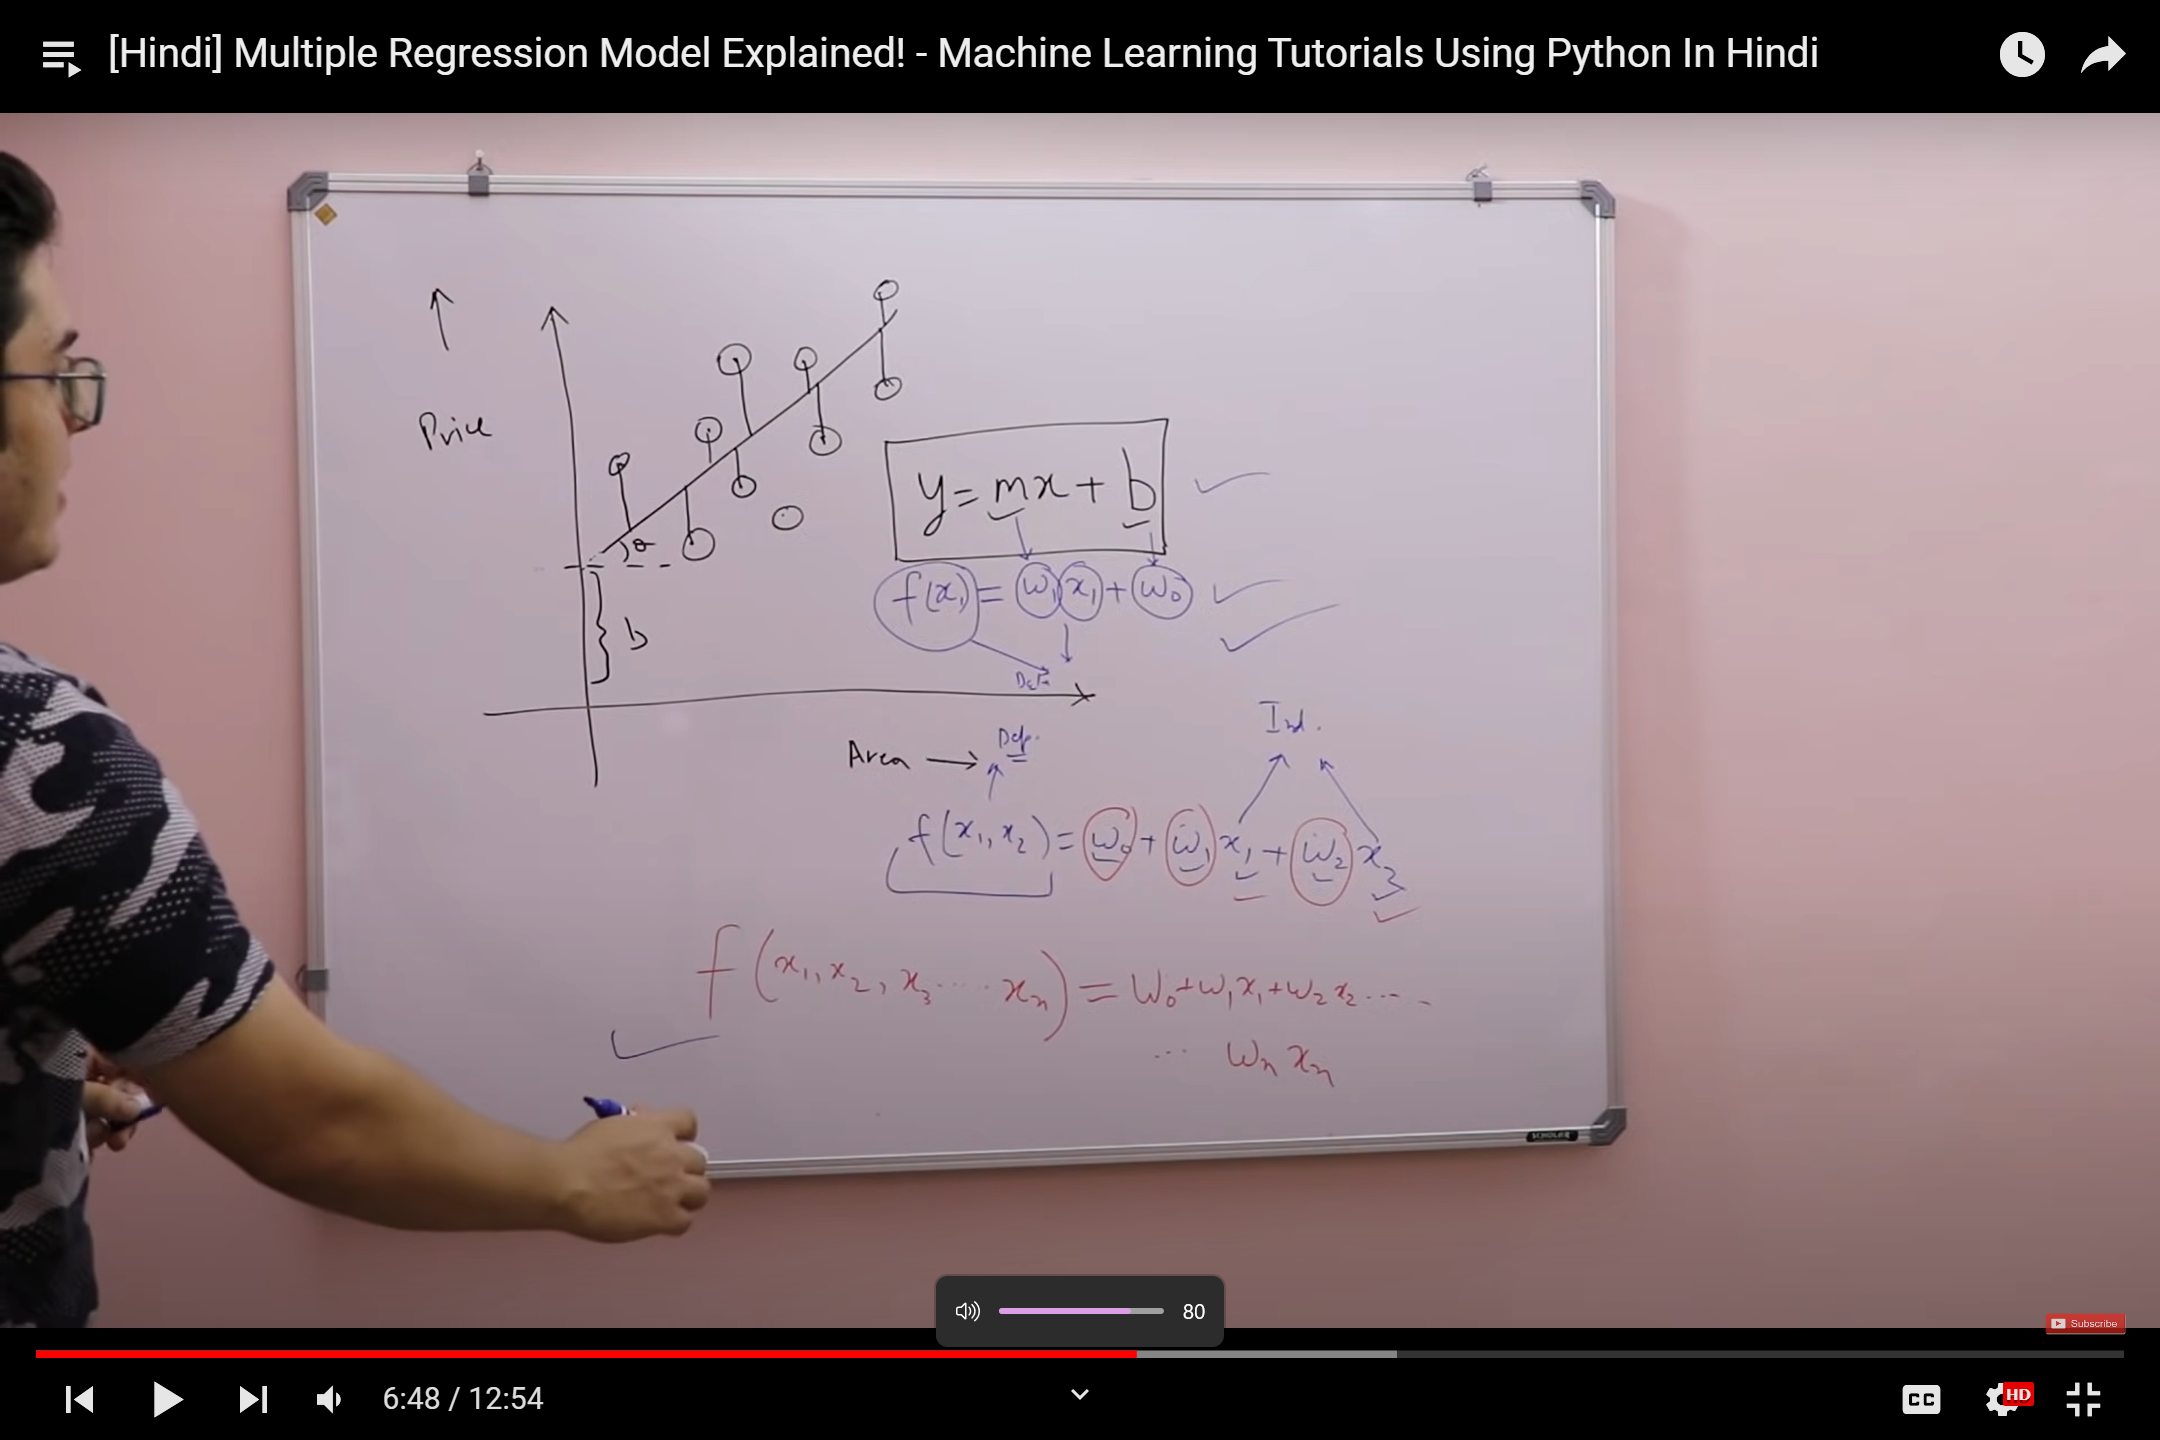 [Hindi] Multiple Regression Model Explained! - Machine Learning Tutorials Using Python In Hindi
Price
θ
b
y = mx + b
f(x₁) = w₁x₁ + w₀
Area → Dep.
Ind.
f(x₁, x₂) = w₀ + w₁x₁ + w₂x₂
f(x₁, x₂, x₃ ..... xₙ) = w₀ + w₁x₁ + w₂x₂ .....
... wₙxₙ
SCHOLAR
80
Subscribe
6:48 / 12:54
CC
HD